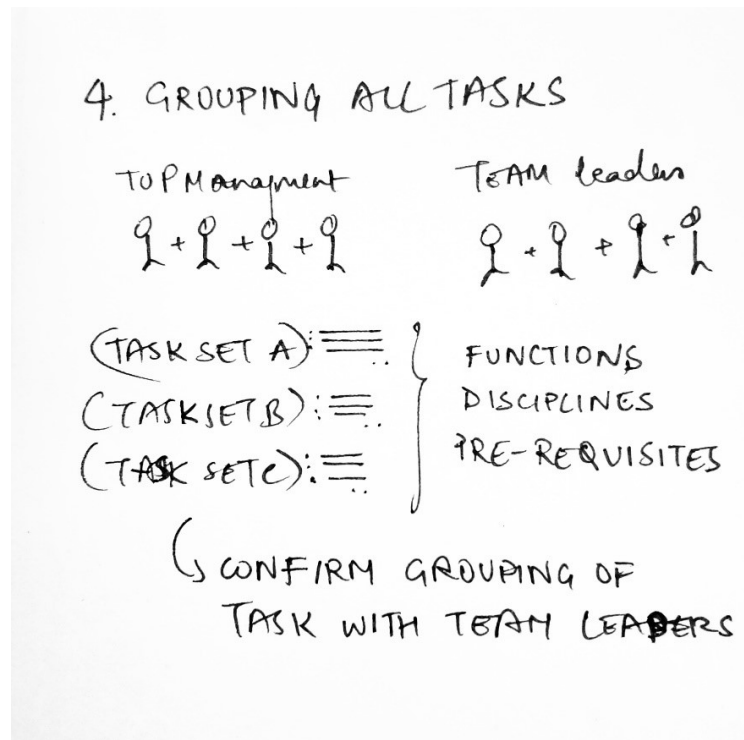 4. GROUPING ALL TASKS
TOP Managment
TEAM leaders
(TASK SET A):
(TASK SET B):
(TASK SET C):
FUNCTIONS
DISCIPLINES
PRE-REQUISITES
CONFIRM GROUPING OF
TASK WITH TEAM LEADERS